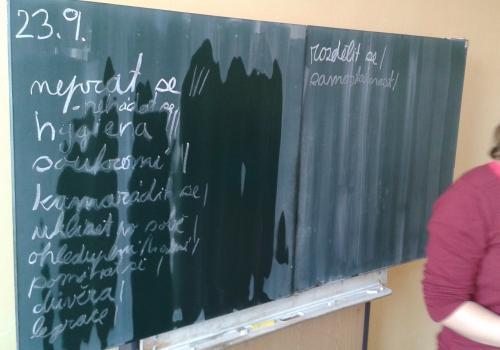 23.9.
neprat se ///
nehádat se
hygiena //
soukromí /
kamarádit se /
uklízet po sobě
pomáhat si /
důvěra /
legrace /
rozdělit se /
samostatnost /